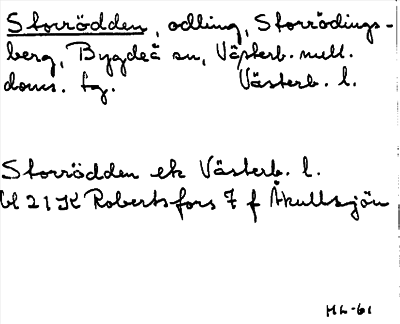 Storrödden, odling, Storrödings-
berg, Bygdeå sn, Västerb. mell.
doms. tg. Västerb. l.
Storrödden ek Västerb. l.
bl 21K Robertsfors 7 f Åkullsjön
HL-61